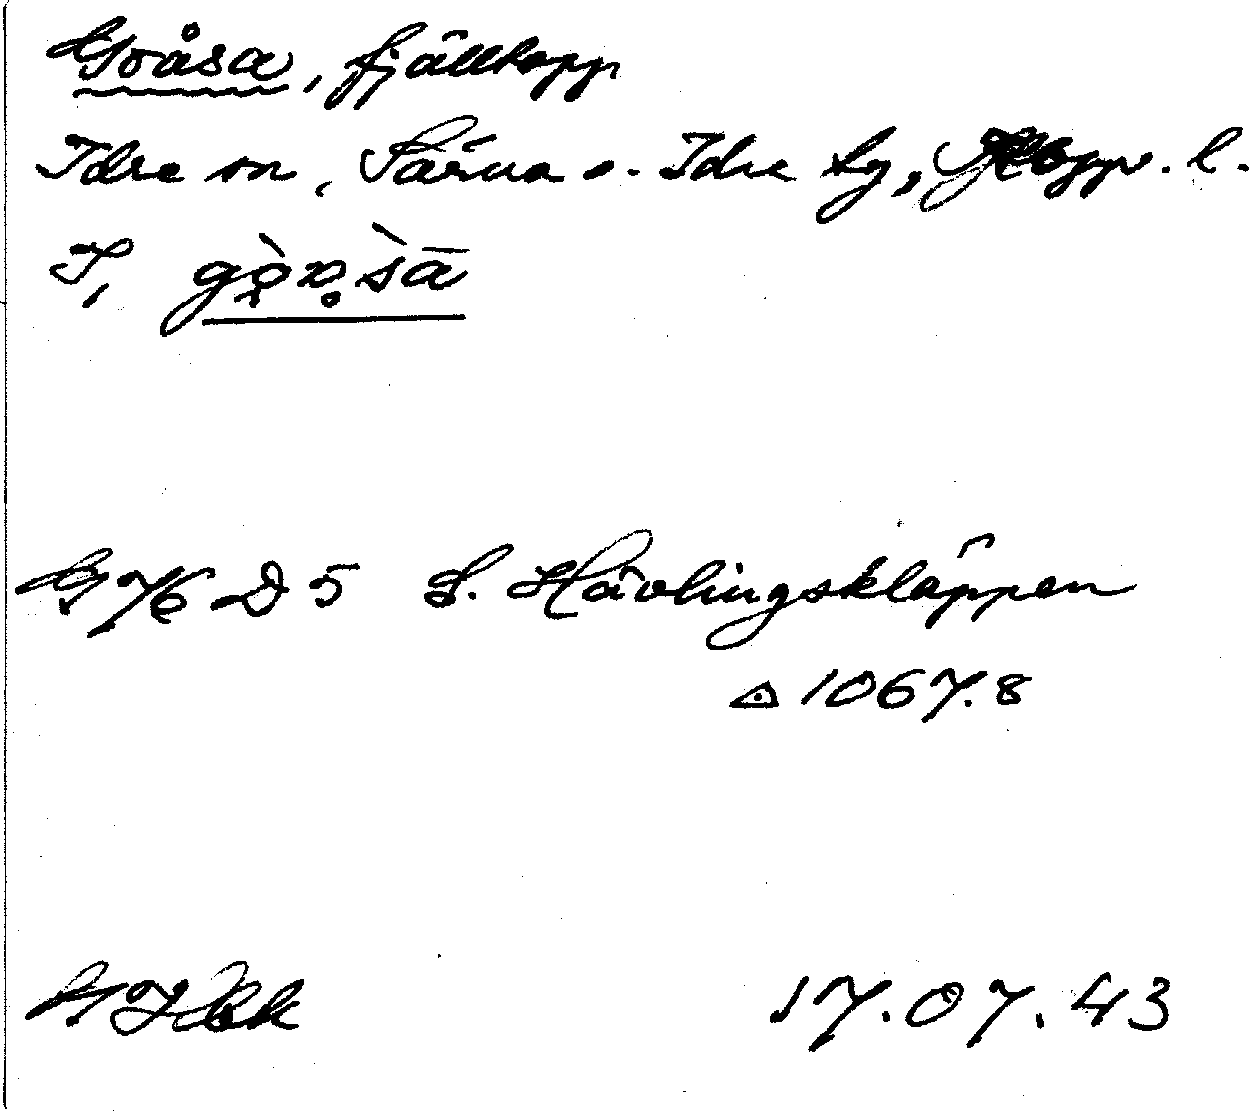 Goåsa, fjälltopp
Idre sn, Särna o. Idre tg, Kopp. l.
I,
G 7/6 D 5 S. Hävlingskläppen
1067.8
17.07.43